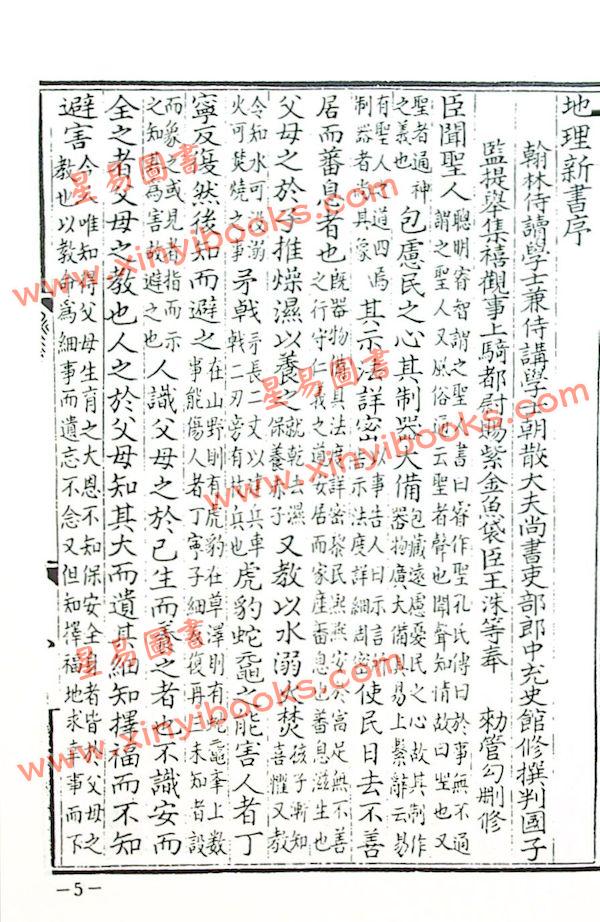 地理新書序
翰林侍讀學士兼侍講學士朝散大夫尚書吏部郎中充史館修撰判國子
監提舉集禧觀事上騎都尉賜紫金魚袋臣王洙等奉 勑管勾刪修
臣聞聖人
聰明睿智謂之聖人書曰睿作聖孔氏傳曰於事無不通
謂之聖人又風俗通云聖者聲也聞聲知情故曰聖也又
聖者通神
之義也
包慮民之心其制器大備
包藏遠慮憂民之心故其制作
器物廣大備具易上繫辭云易
有聖人之道四焉
制器者尚其象
其示法詳密
以事告人曰示言
告示法度詳細周密
使民日去不善
居而蕃息者也
既器物備具法度詳密黎民安於高足無不善
之行守仁義之道安居而家産蕃息也蕃息滋生也
父母之於子推燥濕以養之
就乾去濕
保養赤子
又教以水溺火焚
孩子漸知
喜懼又教
令知水可沒溺
火可焚燒之事
矛戟
矛長二丈以建兵車
戟二刃旁有枝兵也
虎豹蛇黿之能害人者丁
寧反復然後知而避之
在山野則有虎豹在草澤則有蛇黿率上數
事能傷人者丁寧子細反復再三未知者設
而象之或見者指而示
之知其爲害故避之也
人識父母之於己生而養之者也不識安而
全之者父母之教也人之於父母知其大而遺其細知擇福而不知
避害
今唯知得父母生育之大恩不知保安全身者皆於父母之
教也以教命爲細事而遺忘不念又但知擇福地求幸事而下
—5—
星易圖書
www.xinyibooks.com
星易圖書
www.xinyibooks.com
星易圖書
www.xinyibooks.com
星易圖書
www.xinyibooks.com